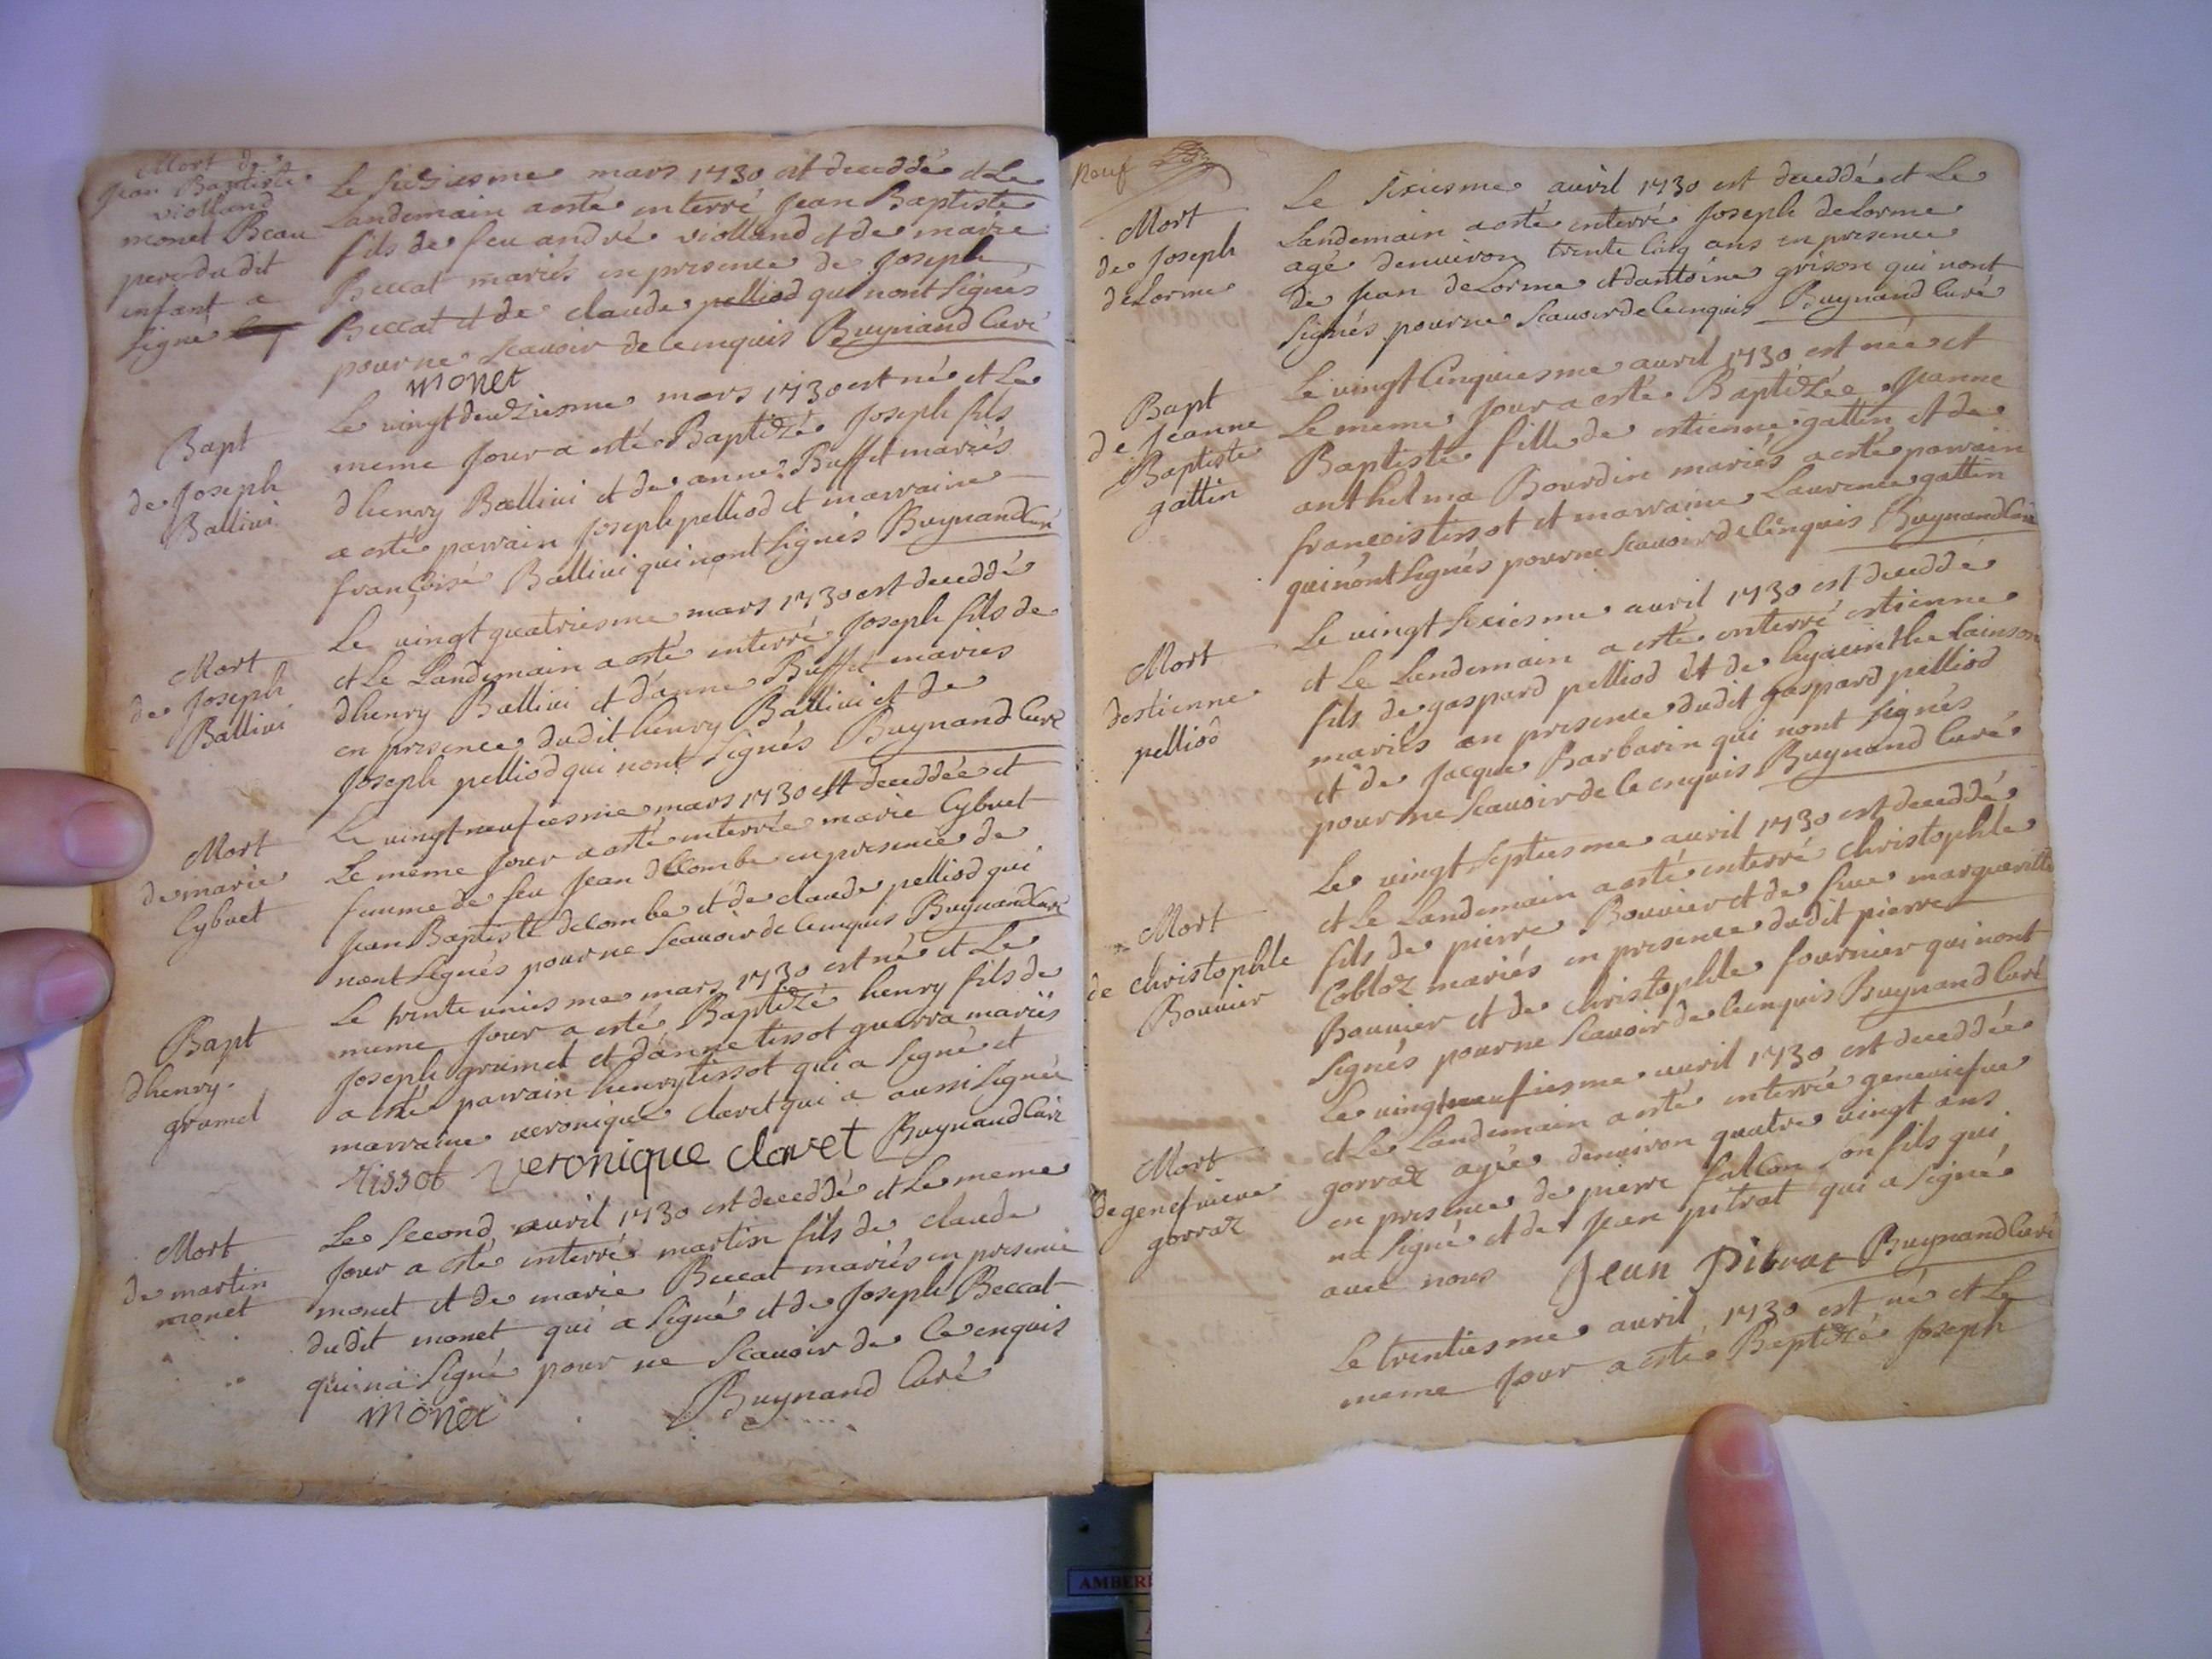 Mort de
Jean Baptiste
violland
monet Beau
pere du dit
enfant a
signé
Le seiziesme mars 1730 est deceddé et Le
Landemain a esté enterré Jean Baptiste
fils de feu andré violland et de marie
Beccat mariés en presence de Joseph
Beccat et de claude pelliod qui nont signés
pour ne scauoir de ce enquis Buynand Curé
monet
Bapt
de Joseph
Balliui
Le vingt deuziesme mars 1730 est né et Le
meme Jour a esté Baptizé Joseph fils
dhenry Balliui et de anne Buffet mariés
a esté parrain Joseph pelliod et marraine
francoise Balliui qui nont signés Buynand Curé
Mort
de Joseph
Balliui
Le vingt quatriesme mars 1730 est deceddé
et Le Landemain a esté enterré Joseph fils de
dhenry Balliui et d'anne Buffet maries
en presence dudit henry Balliui et de
Joseph pelliod qui nont signés Buynand Curé
Mort
de marie
Cybuet
Le vingt neufiesme mars 1730 est deceddée et
Le meme Jour a esté enterrée marie Cybuet
femme de feu Jean deCombe en presence de
Jean Baptiste decombe et de claude pelliod qui
nont signés pour ne scauoir de ce enquis Buynand Curé
Bapt
dhenry
grumet
Le trente uniesme mars 1730 est né et Le
meme Jour a esté Baptizé henry fils de
Joseph grumet et d'anne tissot guerra mariés
a esté parrain henry tissot qui a signé et
marraine veronique claret qui a aussi signée
Tissot veronique claret Buynand Curé
Mort
de martin
monet
Le second auril 1730 est deceddé et Le meme
Jour a esté enterré martin fils de claude
monet et de marie Beccat mariés en presence
dudit monet qui a signé et de Joseph Beccat
qui na signé pour ne scauoir de ce enquis
monet Buynand Curé
neuf
Mort
de Joseph
deLorme
Le sixiesme auril 1730 est deceddé et Le
Landemain a esté enterré Joseph deLorme
agé denuiron trente cinq ans en presence
de Jean deLorme et dantoine grison qui nont
signés pour ne scauoir de ce enquis Buynand Curé
Bapt
de Jeanne
Baptiste
gattin
Le vingt cinquiesme auril 1730 est née et
Le meme Jour a esté Baptizée Jeanne
Baptiste fille de estienne gattin et de
anthelma Bourdin mariés a esté parrain
francois tissot et marraine Laurence gattin
qui nont signés pour ne scauoir de ce enquis Buynand Curé
Mort
destienne
pelliod
Le vingt sixiesme auril 1730 est deceddé
et Le Landemain a esté enterré estienne
fils de gaspard pelliod et de hyacinthe
mariés en presence dudit gaspard pelliod
et de Jacque Barbarin qui nont signés
pour ne scauoir de ce enquis Buynand Curé
Mort
de christophle
Bouuier
Le vingt septiesme auril 1730 est deceddé
et Le Landemain a esté enterré christophle
fils de pierre Bouuier et de feue marguerite
Cobloz mariés en presence dudit pierre
Bouuier et de christophle fournier qui nont
signés pour ne scauoir de ce enquis Buynand Curé
Mort
de genefuieue
gorraz
Le vingt neufiesme auril 1730 est deceddée
et Le Landemain a esté enterrée geneuiefue
gorraz agée denuiron quatre vingt ans
en presence de pierre falcon son fils qui
na signé et de Jean pitrat qui a signé
auec nous Jean Pitrat Buynand Curé
Le trentiesme auril 1730 est né et Le
meme Jour a esté Baptizé Joseph
AMBER